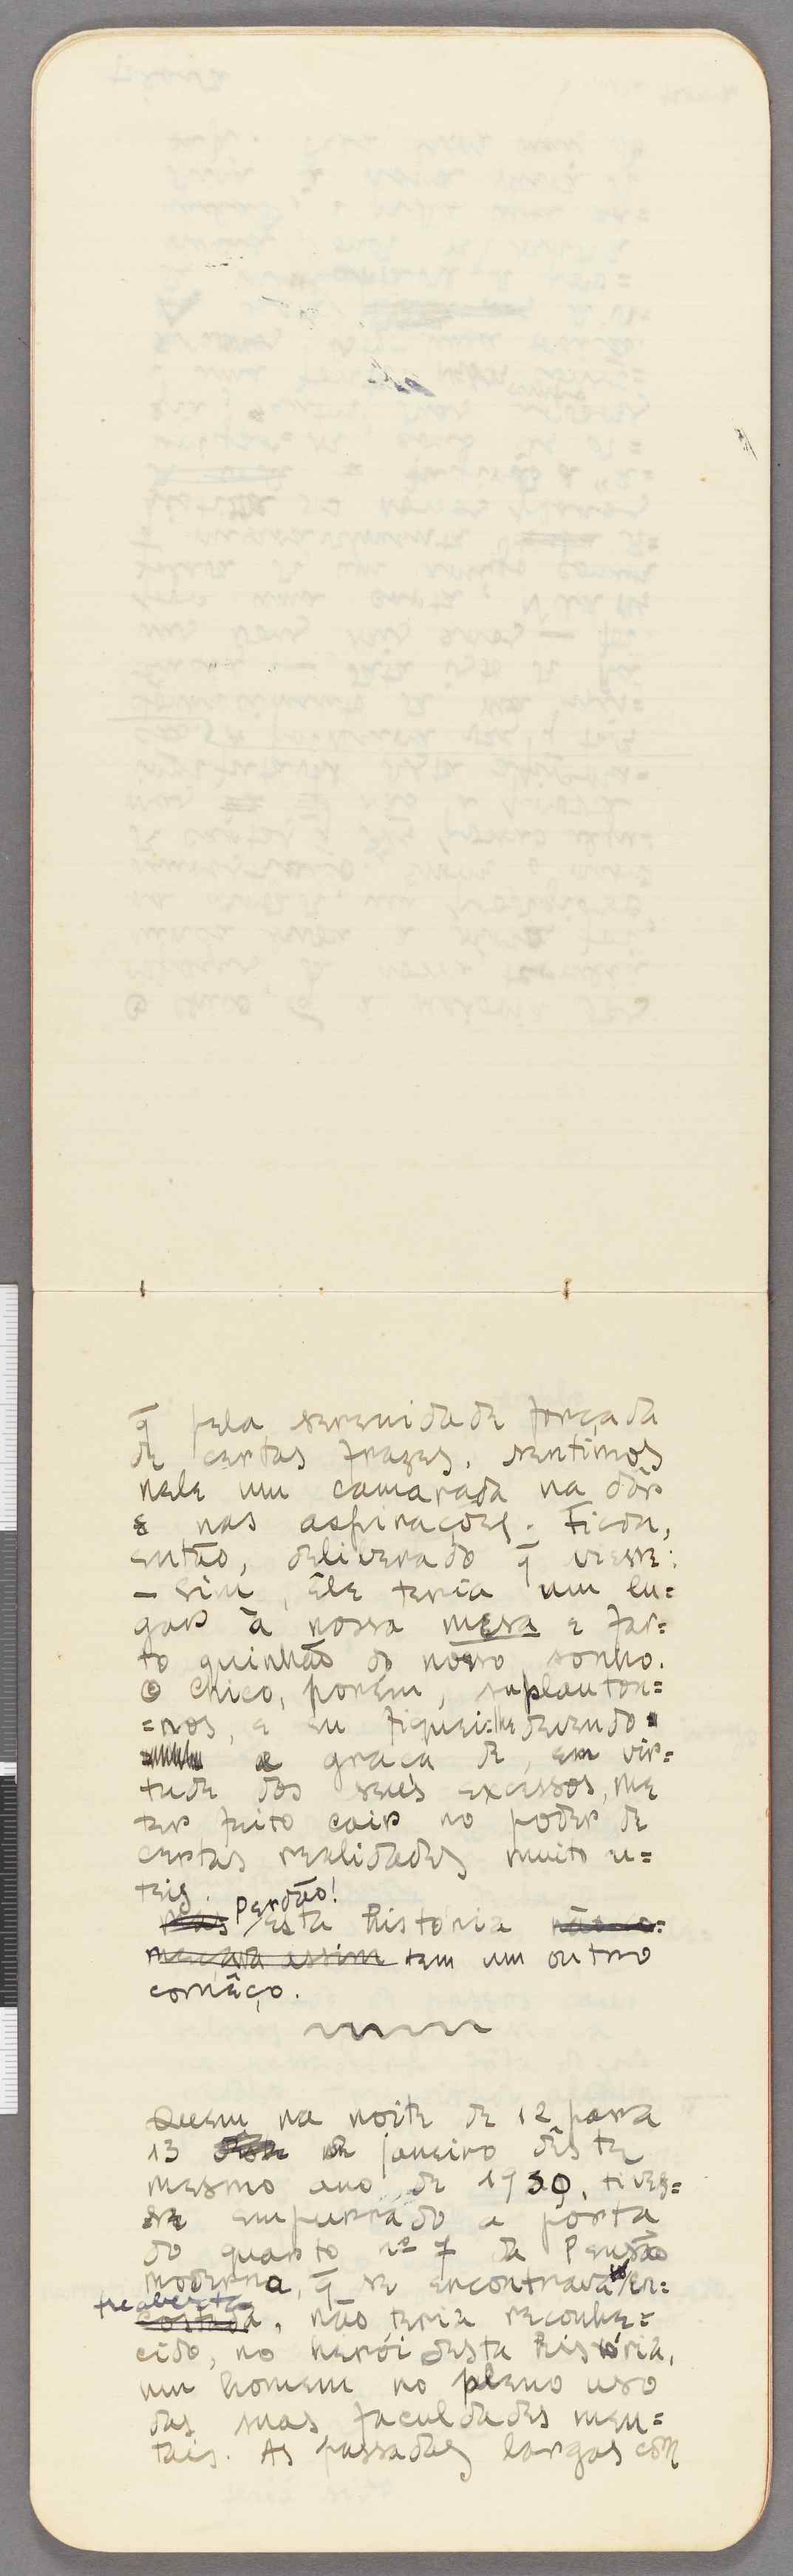 q̃ pela serenidade forçada
de certas frazes, sentimos
nele um camarada na dôr
e nas aspirações. Ficou,
então, deliverado q̃ viesse:
— sim, êle teria um lu=
gar à nossa mesa e far=
to quinhão do nosso sonho.
O Chico, porém, suplantou=
=nos, e eu fiquei-lhe devendo
a graça de, em vir=
tude dos seus excessos, me
ter feito cair no poder de
certas realidades muito u=
teis.
Perdão!
Mas Esta historia não co=
meçava assim tem um outro
comêço.
Quem, na noite de 12 para
13 de janeiro dêste
mesmo ano de 1930, tives=
se empurrado a porta
do quarto nº 7 da Pensão
moderna, q̃ se encontrava en=
treaberta
costada, não teria reconhe=
cido, no herói desta história,
um homem no pleno uso
das suas faculdades men=
tais. As passadas largas com